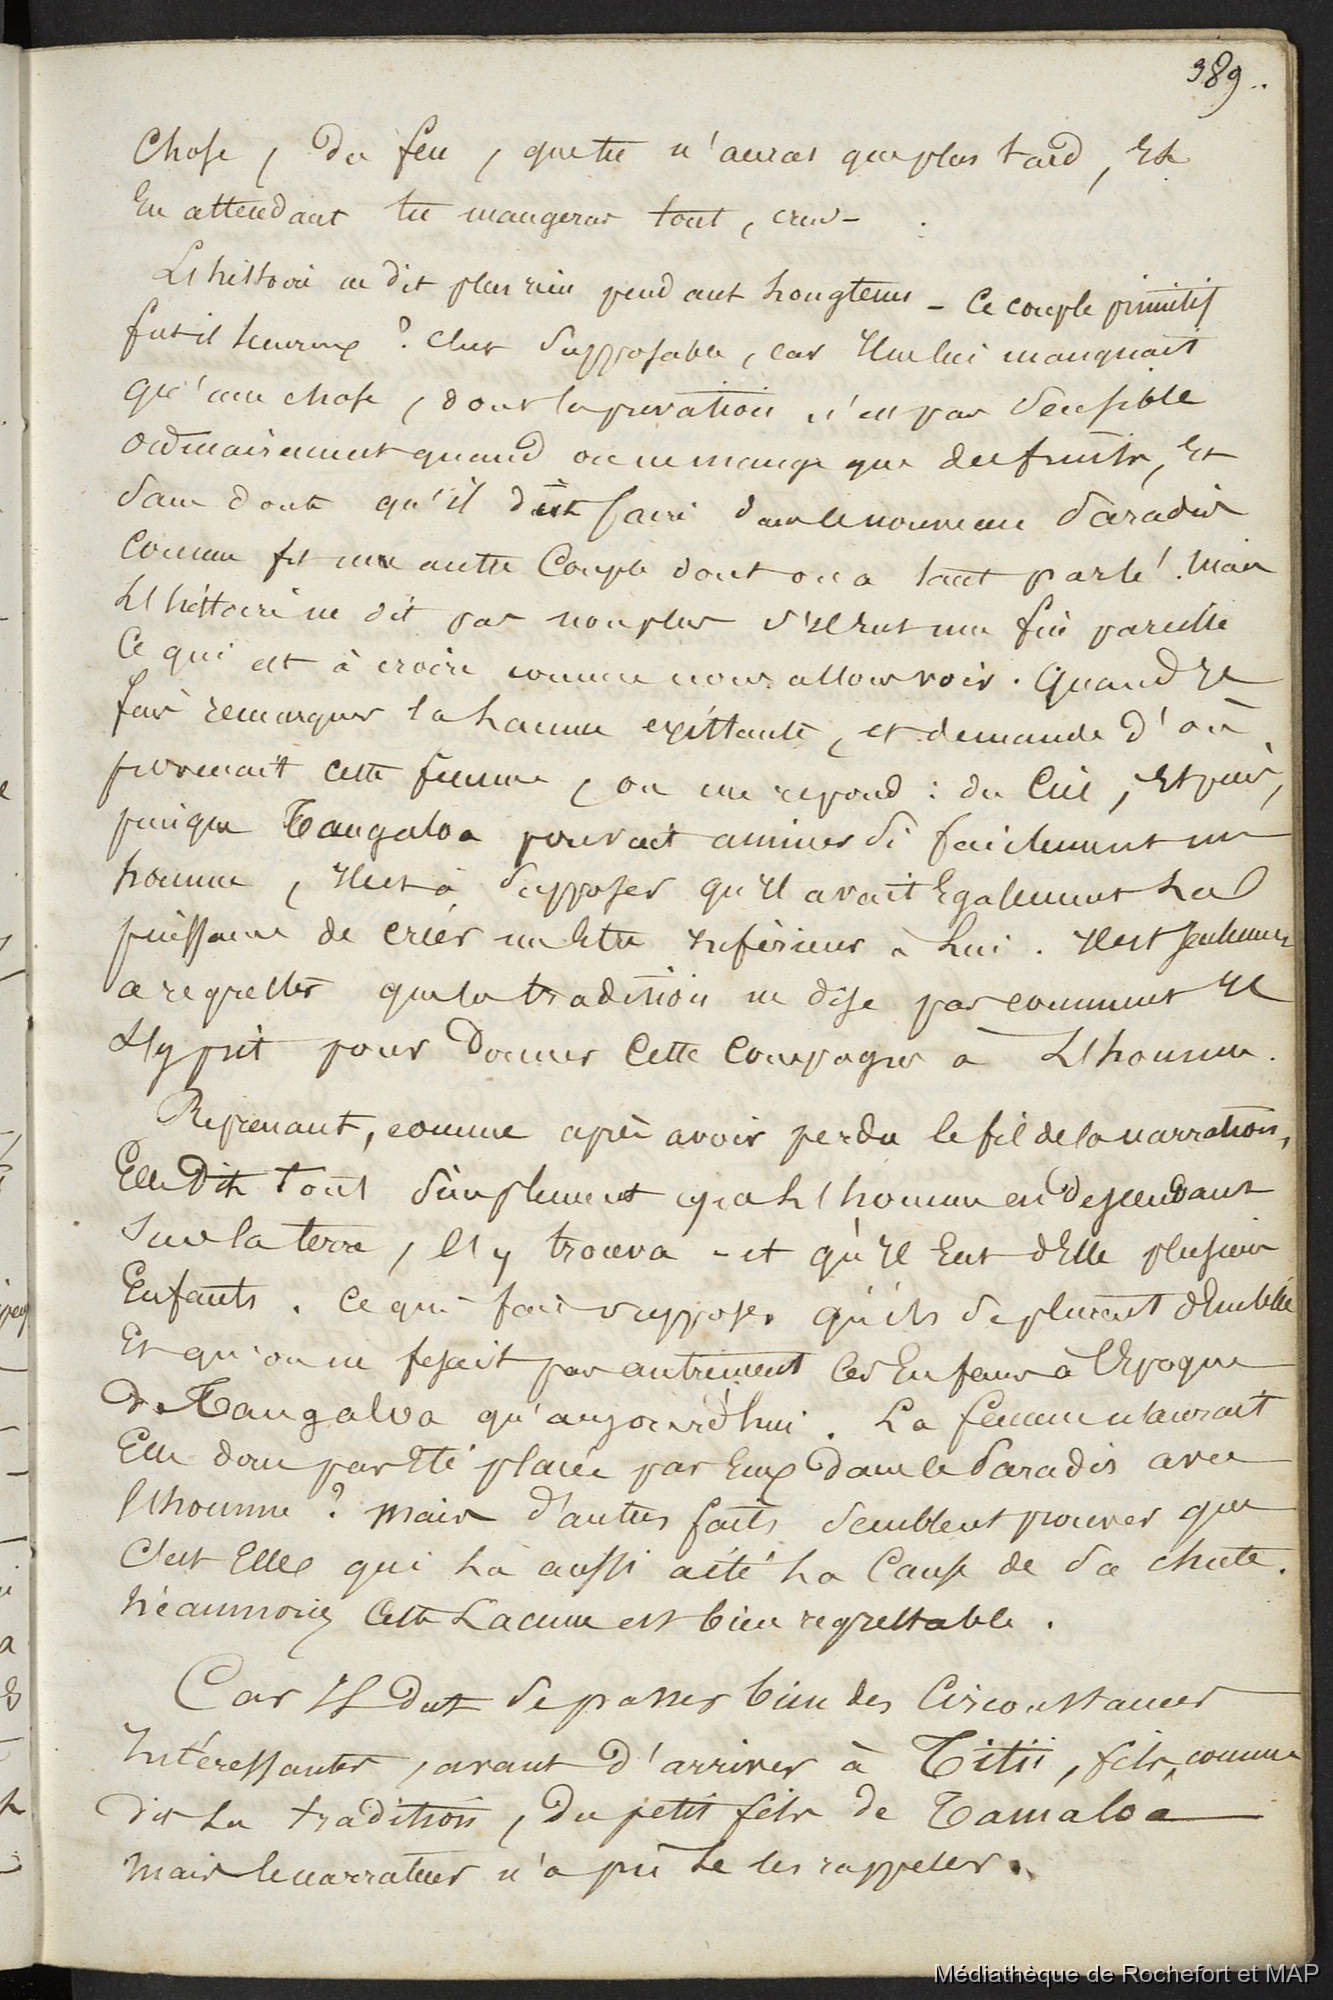 389..
Chose, du feu, que tu n'auras que plus tard, Et
En attendant tu mangeras tout, crud -
L'histoire ne dit plus rien pendant longtems - Ce couple primitif
fut il heureux ? c'est supposable, car Il ne lui manquait
qu'une chose, dont la privation n'est pas sensible
ordinairement quand on ne mange que des fruits, Et
sans doute qu'il dût faire dans le nouveau Paradis
comme fit un autre Couple dont on a tant parlé ! Mais
L'histoire ne dit pas non plus s'Il eut une fin pareille
Ce qui est à croire comme nous allons voir. Quand Je
fais remarquer la lacune existante, et demande d'où
provenait cette femme, on me repond : du Ciel, Et puis,
puisque Tangaloa pouvait animer si facilement un
homme, Il est à supposer qu'Il avait Egalement La
puissance de créer un Etre Inférieur à Lui. Il est seulement
a regretter que la tradition ne dise pas comment Il
s'y prit pour donner Cette Compagne à L'homme.
Reprenant, comme après avoir perdu le fil de la narration,
Elle Dit tout simplement qu'a L'homme en descendant
sur la terre, l'y trouva - et qu'Il Eut d'Elle plusieurs
Enfants. Ce qui fait supposer qu'ils se plurent d'Emblée
Et qu'on ne fesait pas autrement les Enfans à l'Epoque
de Tangaloa qu'aujourd'hui. La femme n'aurait
Elle donc pas Eté placée par Eux dans le Paradis avec
l'homme ? Mais d'autres faits semblent prouver que
C'est Elle qui Là aussi a été La Cause de Sa chute.
Néanmoins Cette Lacune est bien regrettable.
Car Il dut se passer bien des Circonstances
Intéressantes, avant d'arriver à Titii, fils, comme
dit La tradition, du petit fils de Tamaloa
Mais le narrateur n'a pu se les rappeler.
Médiathèque de Rochefort et MAP